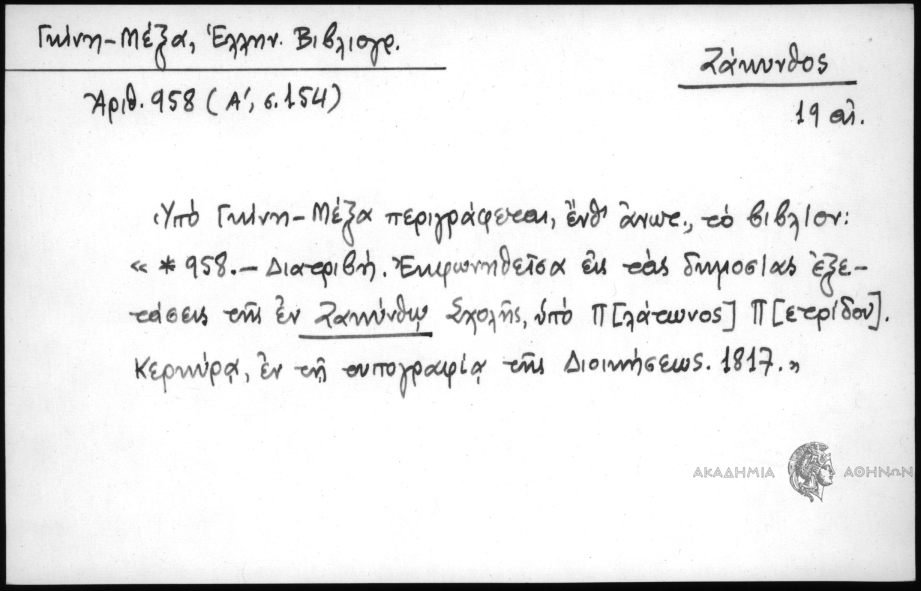 Γκίνη-Μέξα, Ἑλλην. Βιβλιογρ.
Ζάκυνθος
Ἀριθ. 958 (Α', σ. 154)
19 αἰ.
Ὑπὸ Γκίνη-Μέξα περιγράφεται, ἔνθ' ἄνωτ., τὸ βιβλίον:
« * 958. — Διατριβή. Ἐκφωνηθεῖσα εἰς τὰς δημοσίας ἐξε-
τάσεις τῆς ἐν Ζακύνθῳ Σχολῆς, ὑπὸ Π[λάτωνος] Π[ετρίδου].
Κερκύρᾳ, ἐν τῇ τυπογραφίᾳ τῆς Διοικήσεως. 1817.»
ΑΚΑΔΗΜΙΑ ΑΘΗΝΩΝ